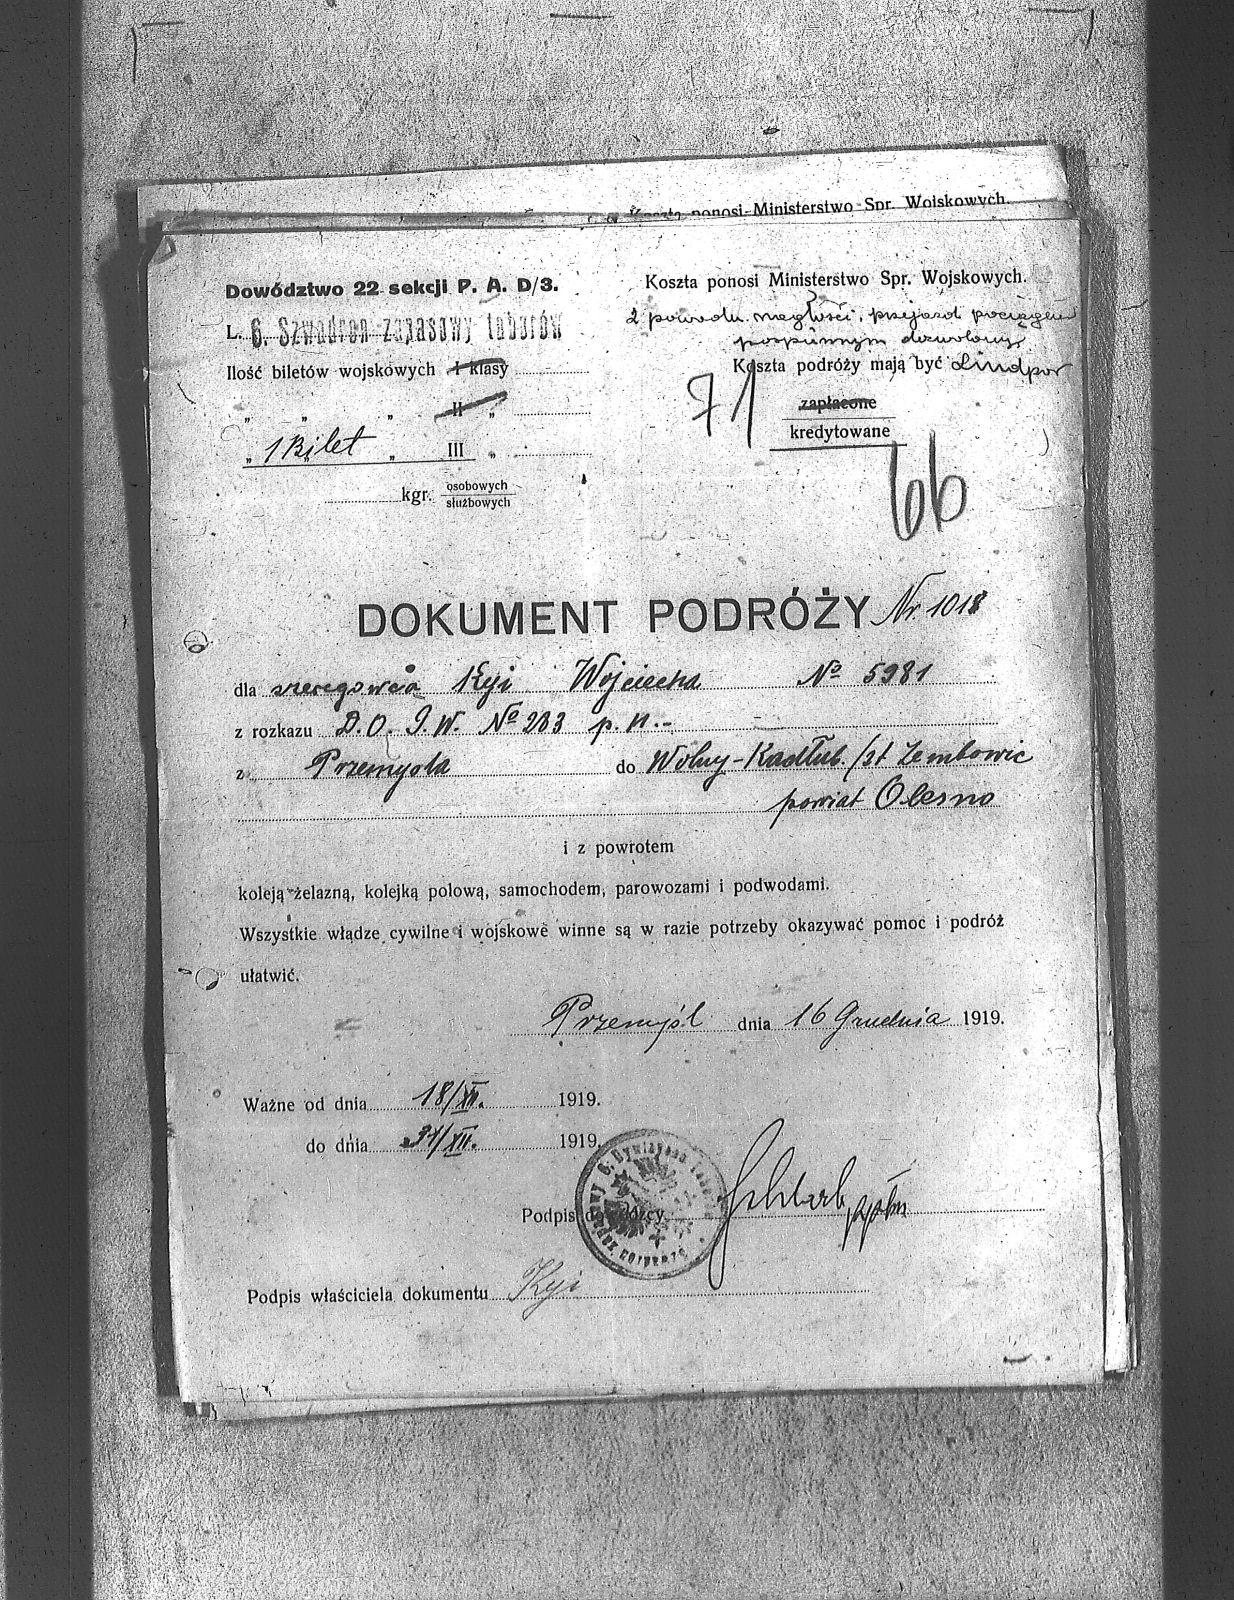 Koszta ponosi Ministerstwo Spr. Wojskowych.
Dowództwo 22 sekcji P. A. D/3.
Koszta ponosi Ministerstwo Spr. Wojskowych.
L. 6. Szwadron zapasowy taborów
z powodu nagłości, przejazd pociągiem
pospiesznym dozwolony
Ilość biletów wojskowych I klasy
Koszta podróży mają być
71
" " " II "
zapłacone
" 1 Bilet " III "
kredytowane
66
kgr. osobowych
służbowych
DOKUMENT PODRÓŻY Nr. 1018
dla szeregowca Kyi Wojciecha No 5981
z rozkazu D.O.G.W. No 283 p.n.-
z Przemyśla do Wolny-Kadłub /st Zembowic
powiat Olesno
i z powrotem
koleją żelazną, kolejką polową, samochodem, parowozami i podwodami.
Wszystkie władze cywilne i wojskowe winne są w razie potrzeby okazywać pomoc i podróż
ułatwić.
Przemyśl dnia 16 Grudnia 1919.
Ważne od dnia 18/XII. 1919.
do dnia 31/XII. 1919.
Podpis dowódcy
Podpis właściciela dokumentu Kyi